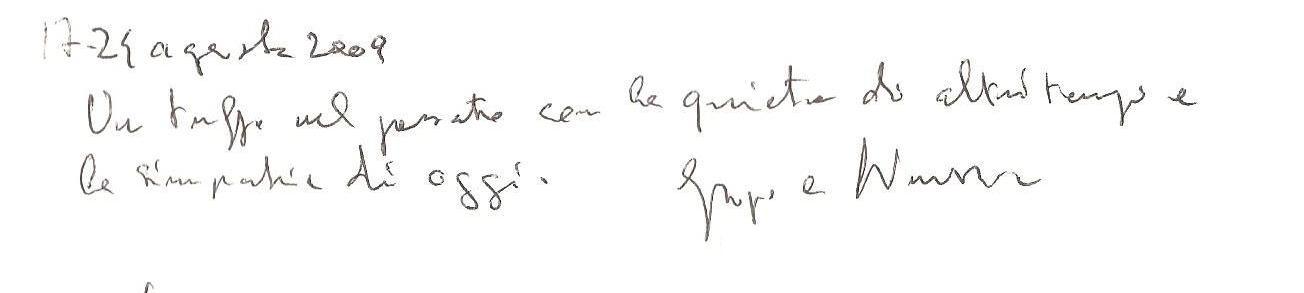 17-24 agosto 2009
Un tuffo nel passato con la quiete di altri tempi e
la simpatia di oggi.